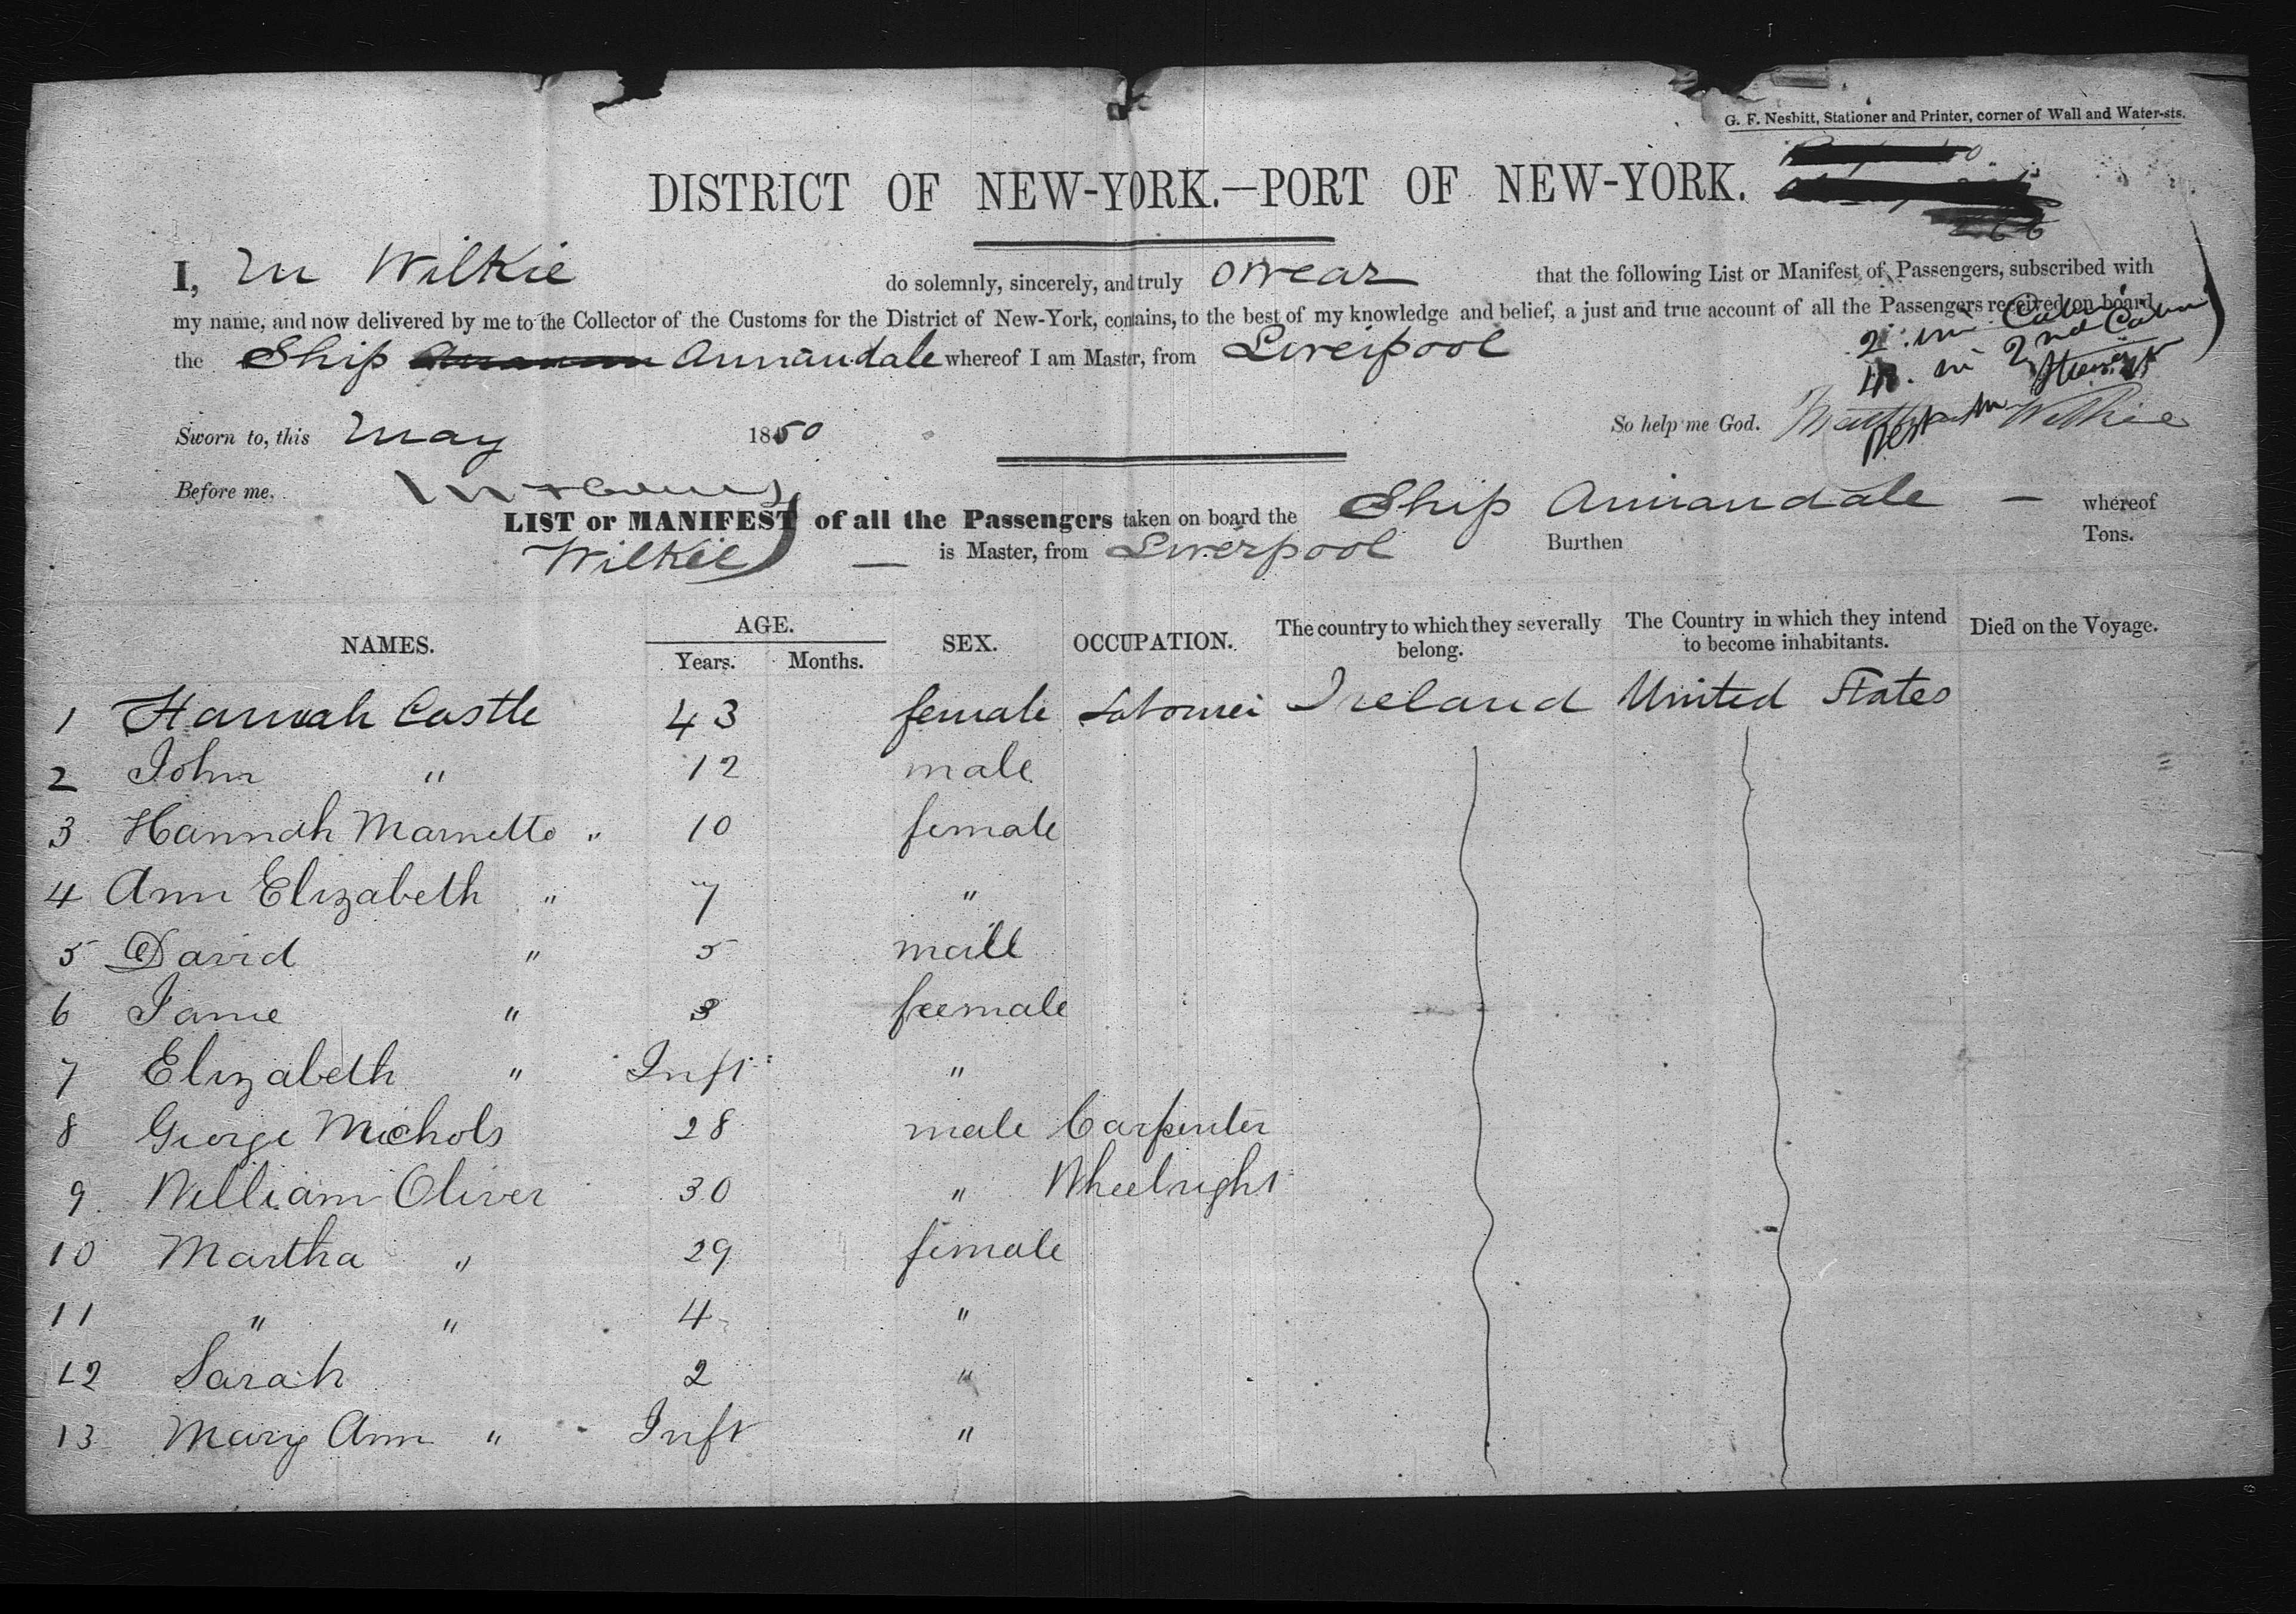 G. F. Nesbitt, Stationer and Printer, corner of Wall and Water-sts.
DISTRICT OF NEW-YORK.—PORT OF NEW-YORK.
I, M Wilkie do solemnly, sincerely, and truly swear that the following List or Manifest of Passengers, subscribed with
my name, and now delivered by me to the Collector of the Customs for the District of New-York, contains, to the best of my knowledge and belief, a just and true account of all the Passengers received on board
the Ship Annandale whereof I am Master, from Liverpool
2 in Cabin
in 2nd Cabin
Rest in Steerage
Sworn to, this May 1850 So help me God. Wilkie
Before me,
LIST or MANIFEST of all the Passengers taken on board the Ship Annandale — whereof
Wilkie — is Master, from Liverpool Burthen Tons.
NAMES. AGE. Years. Months. SEX. OCCUPATION. The country to which they severally belong. The Country in which they intend to become inhabitants. Died on the Voyage.
1 Hannah Castle 43 female Ireland United States
2 John " 12 male
3 Hannah " 10 female
4 Ann Elizabeth " 7 "
5 David " 5 male
6 Jane " 3 female
7 Elizabeth " Inft "
8 George Michols 28 male Carpenter
9 William Oliver 30 " Wheelright
10 Martha " 29 female
11 " " 4 "
12 Sarah 2 "
13 Mary Ann " Inft "